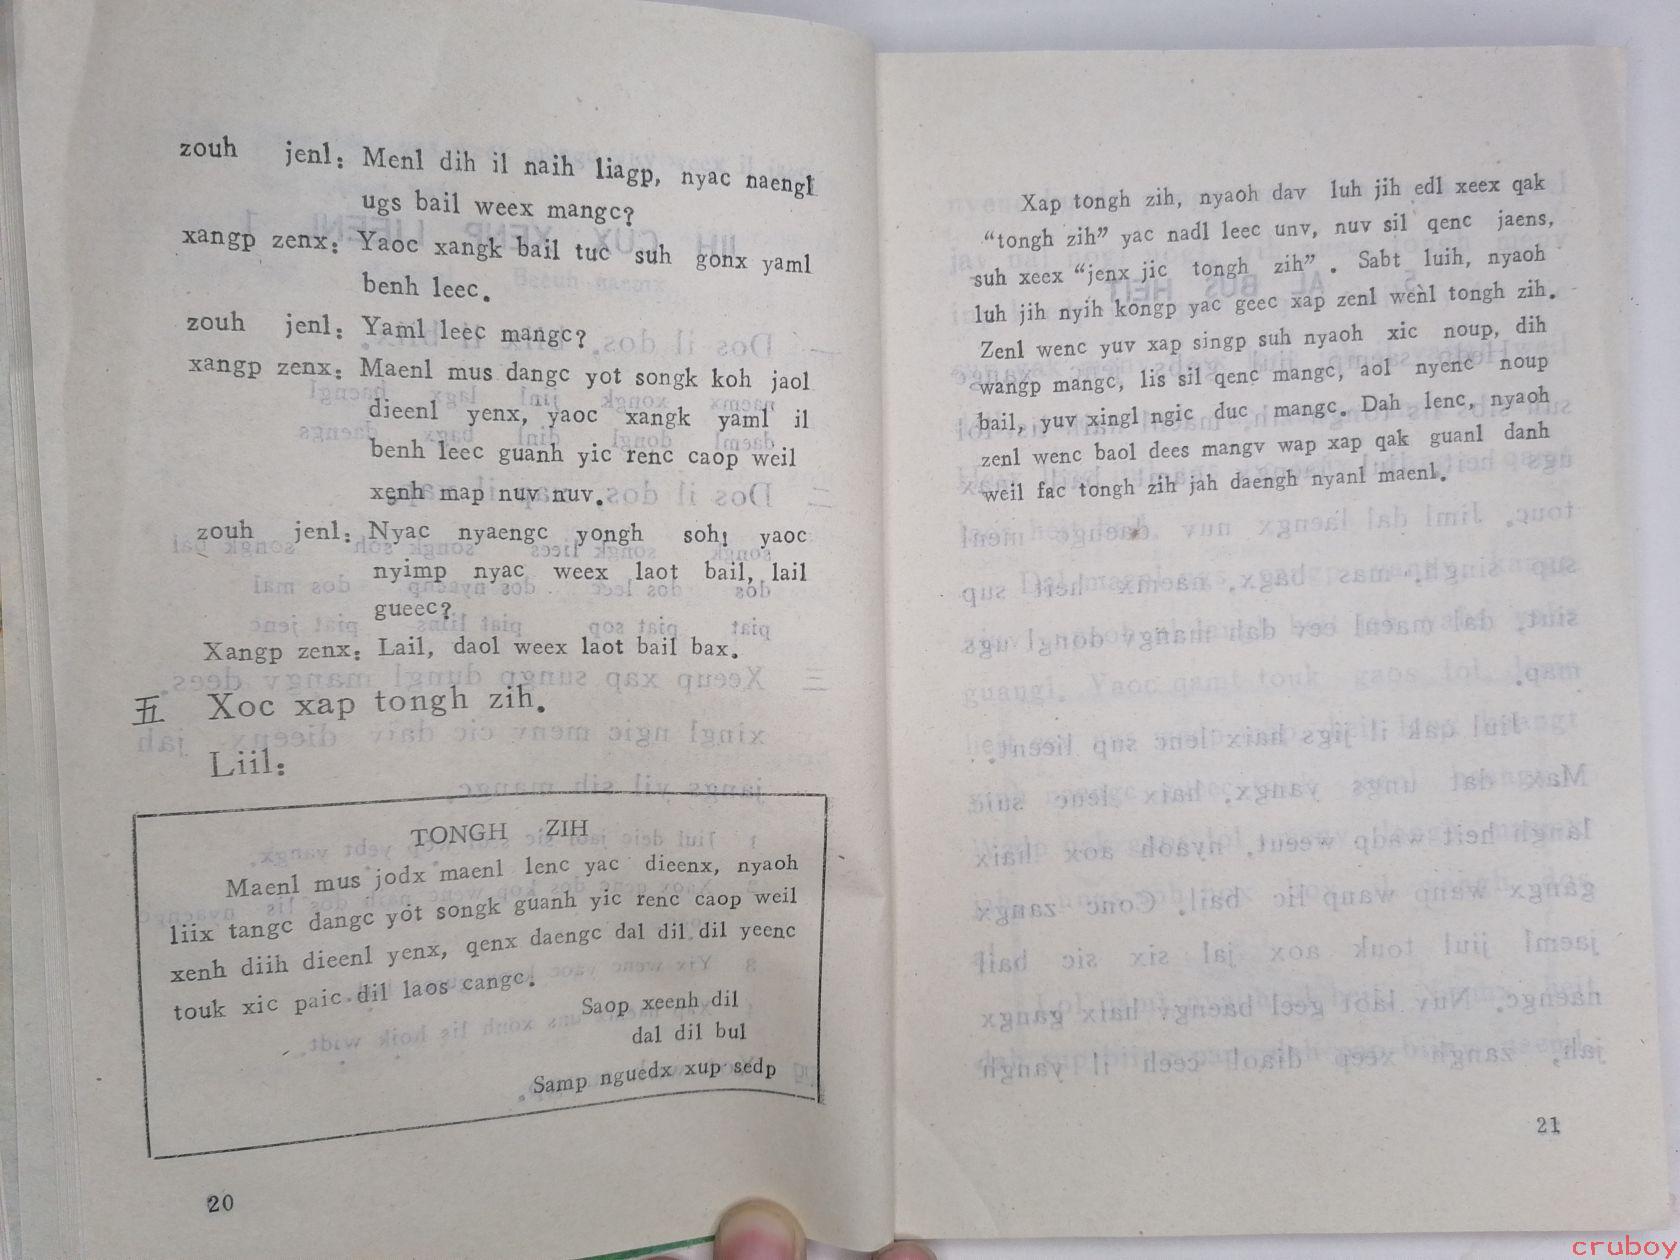 zouh jenl: Menl dih il naih liagp, nyac naengl
ugs bail weex mangc?
xangp zenx: Yaoc xangk bail tuc suh gonx yaml
benh leec.
zouh jenl: Yaml leec mangc?
xangp zenx: Maenl mus dangc yot songk koh jaol
dieenl yenx, yaoc xangk yaml il
benh leec guanh yic renc caop weil
xenh map nuv nuv.
zouh jenl: Nyac nyaengc yongh soh! yaoc
nyimp nyac weex laot bail, lail
gueec?
Xangp zenx: Lail, daol weex laot bail bax.
五 Xoc xap tongh zih.
Liil:
TONGH ZIH
Maenl mus jodx maenl lenc yac dieenx, nyaoh
liix tangc dangc yot songk guanh yic renc caop weil
xenh diih dieenl yenx, qenx daengc dal dil dil yeenc
touk xic paic dil laos cangc.
Saop xeenh dil
dal dil bul
Samp nguedx xup sedp
20
Xap tongh zih, nyaoh dav luh jih edl xeex qak
“tongh zih” yac nadl leec unv, nuv sil qenc jaens,
suh xeex “jenx jic tongh zih”. Sabt luih, nyaoh
luh jih nyih kongp yac geec xap zenl wenl tongh zih.
Zenl wenc yuv xap singp suh nyaoh xic noup, dih
wangp mangc, lis sil qenc mangc, aol nyenc noup
bail, yuv xingl ngic duc mangc. Dah lenc, nyaoh
zenl wenc baol dees mangv wap xap qak guanl danh
weil fac tongh zih jah daengh nyanl maenl.
21
cruboy